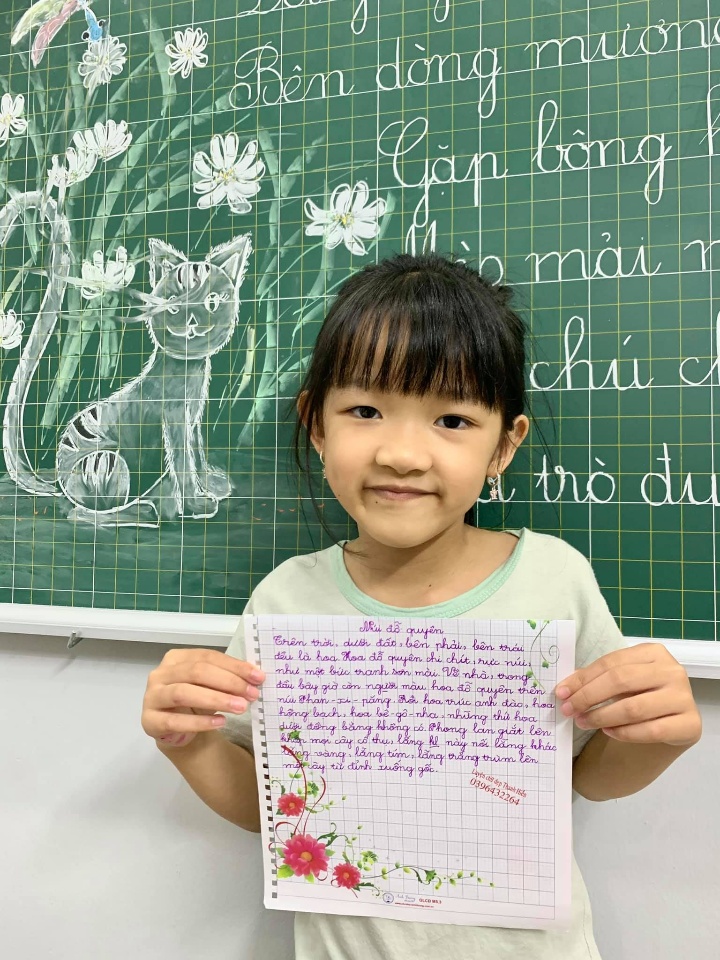 Bên dòng mương
Gặp bông
mải
chú
trò đu
Núi đỗ quyên
Trên trời, dưới đất, bên phải, bên trái
đều là hoa. Hoa đỗ quyên chi chít, rực núi,
như một bức tranh sơn mài. Về nhà, trong
đầu bây giờ còn nguyên màu hoa đỗ quyên trên
núi Phan-xi-păng. Rồi hoa trúc anh đào, hoa
hồng bạch, hoa bê-gô-nha, những thứ hoa
dưới đồng bằng không có. Phong lan giát lên
khắp mọi cây cổ thụ, lẵng này nối lẵng khác
vàng, lẵng tím, lẵng trắng trùm lên
cây từ đỉnh xuống gốc.
Luyện chữ đẹp Thanh Hiền
0396432264
GLCD MS:3